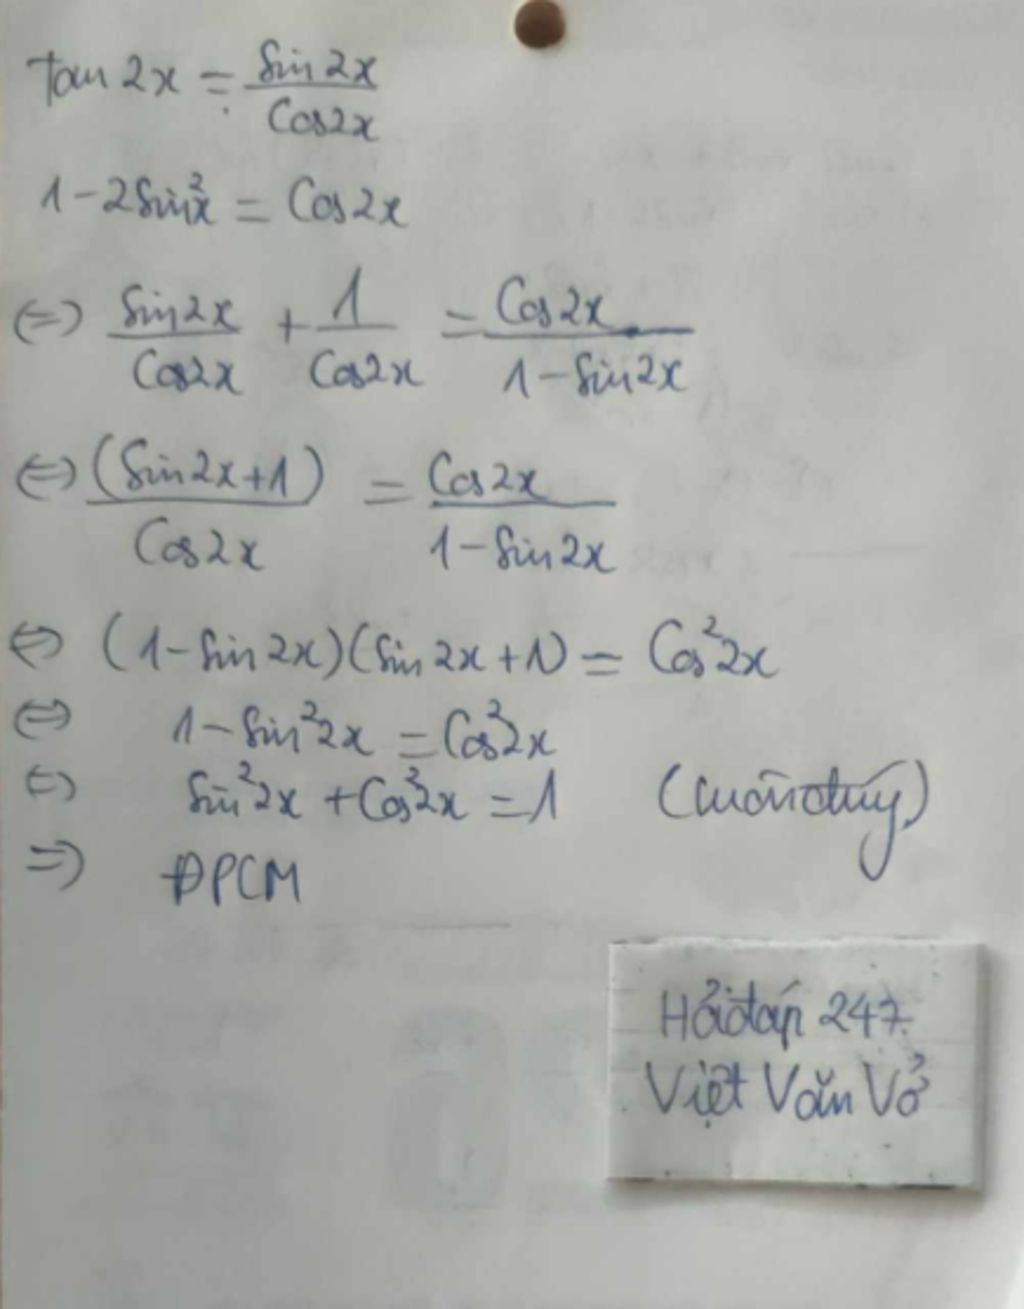 tan 2x = sin 2x / cos 2x
1 - 2sin²x = cos 2x
(=) sin 2x / cos 2x + 1 / cos 2x = cos 2x / 1 - sin 2x
(=) (sin 2x + 1) / cos 2x = cos 2x / 1 - sin 2x
(=) (1 - sin 2x)(sin 2x + 1) = cos²2x
(=) 1 - sin²2x = cos²2x
(=) sin²2x + cos²2x = 1 (luôn đúng)
=) ĐPCM
Hỏi đáp 247
Việt Văn Vở